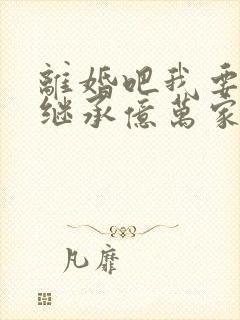 離婚吧我要
继承億萬家
凡靡